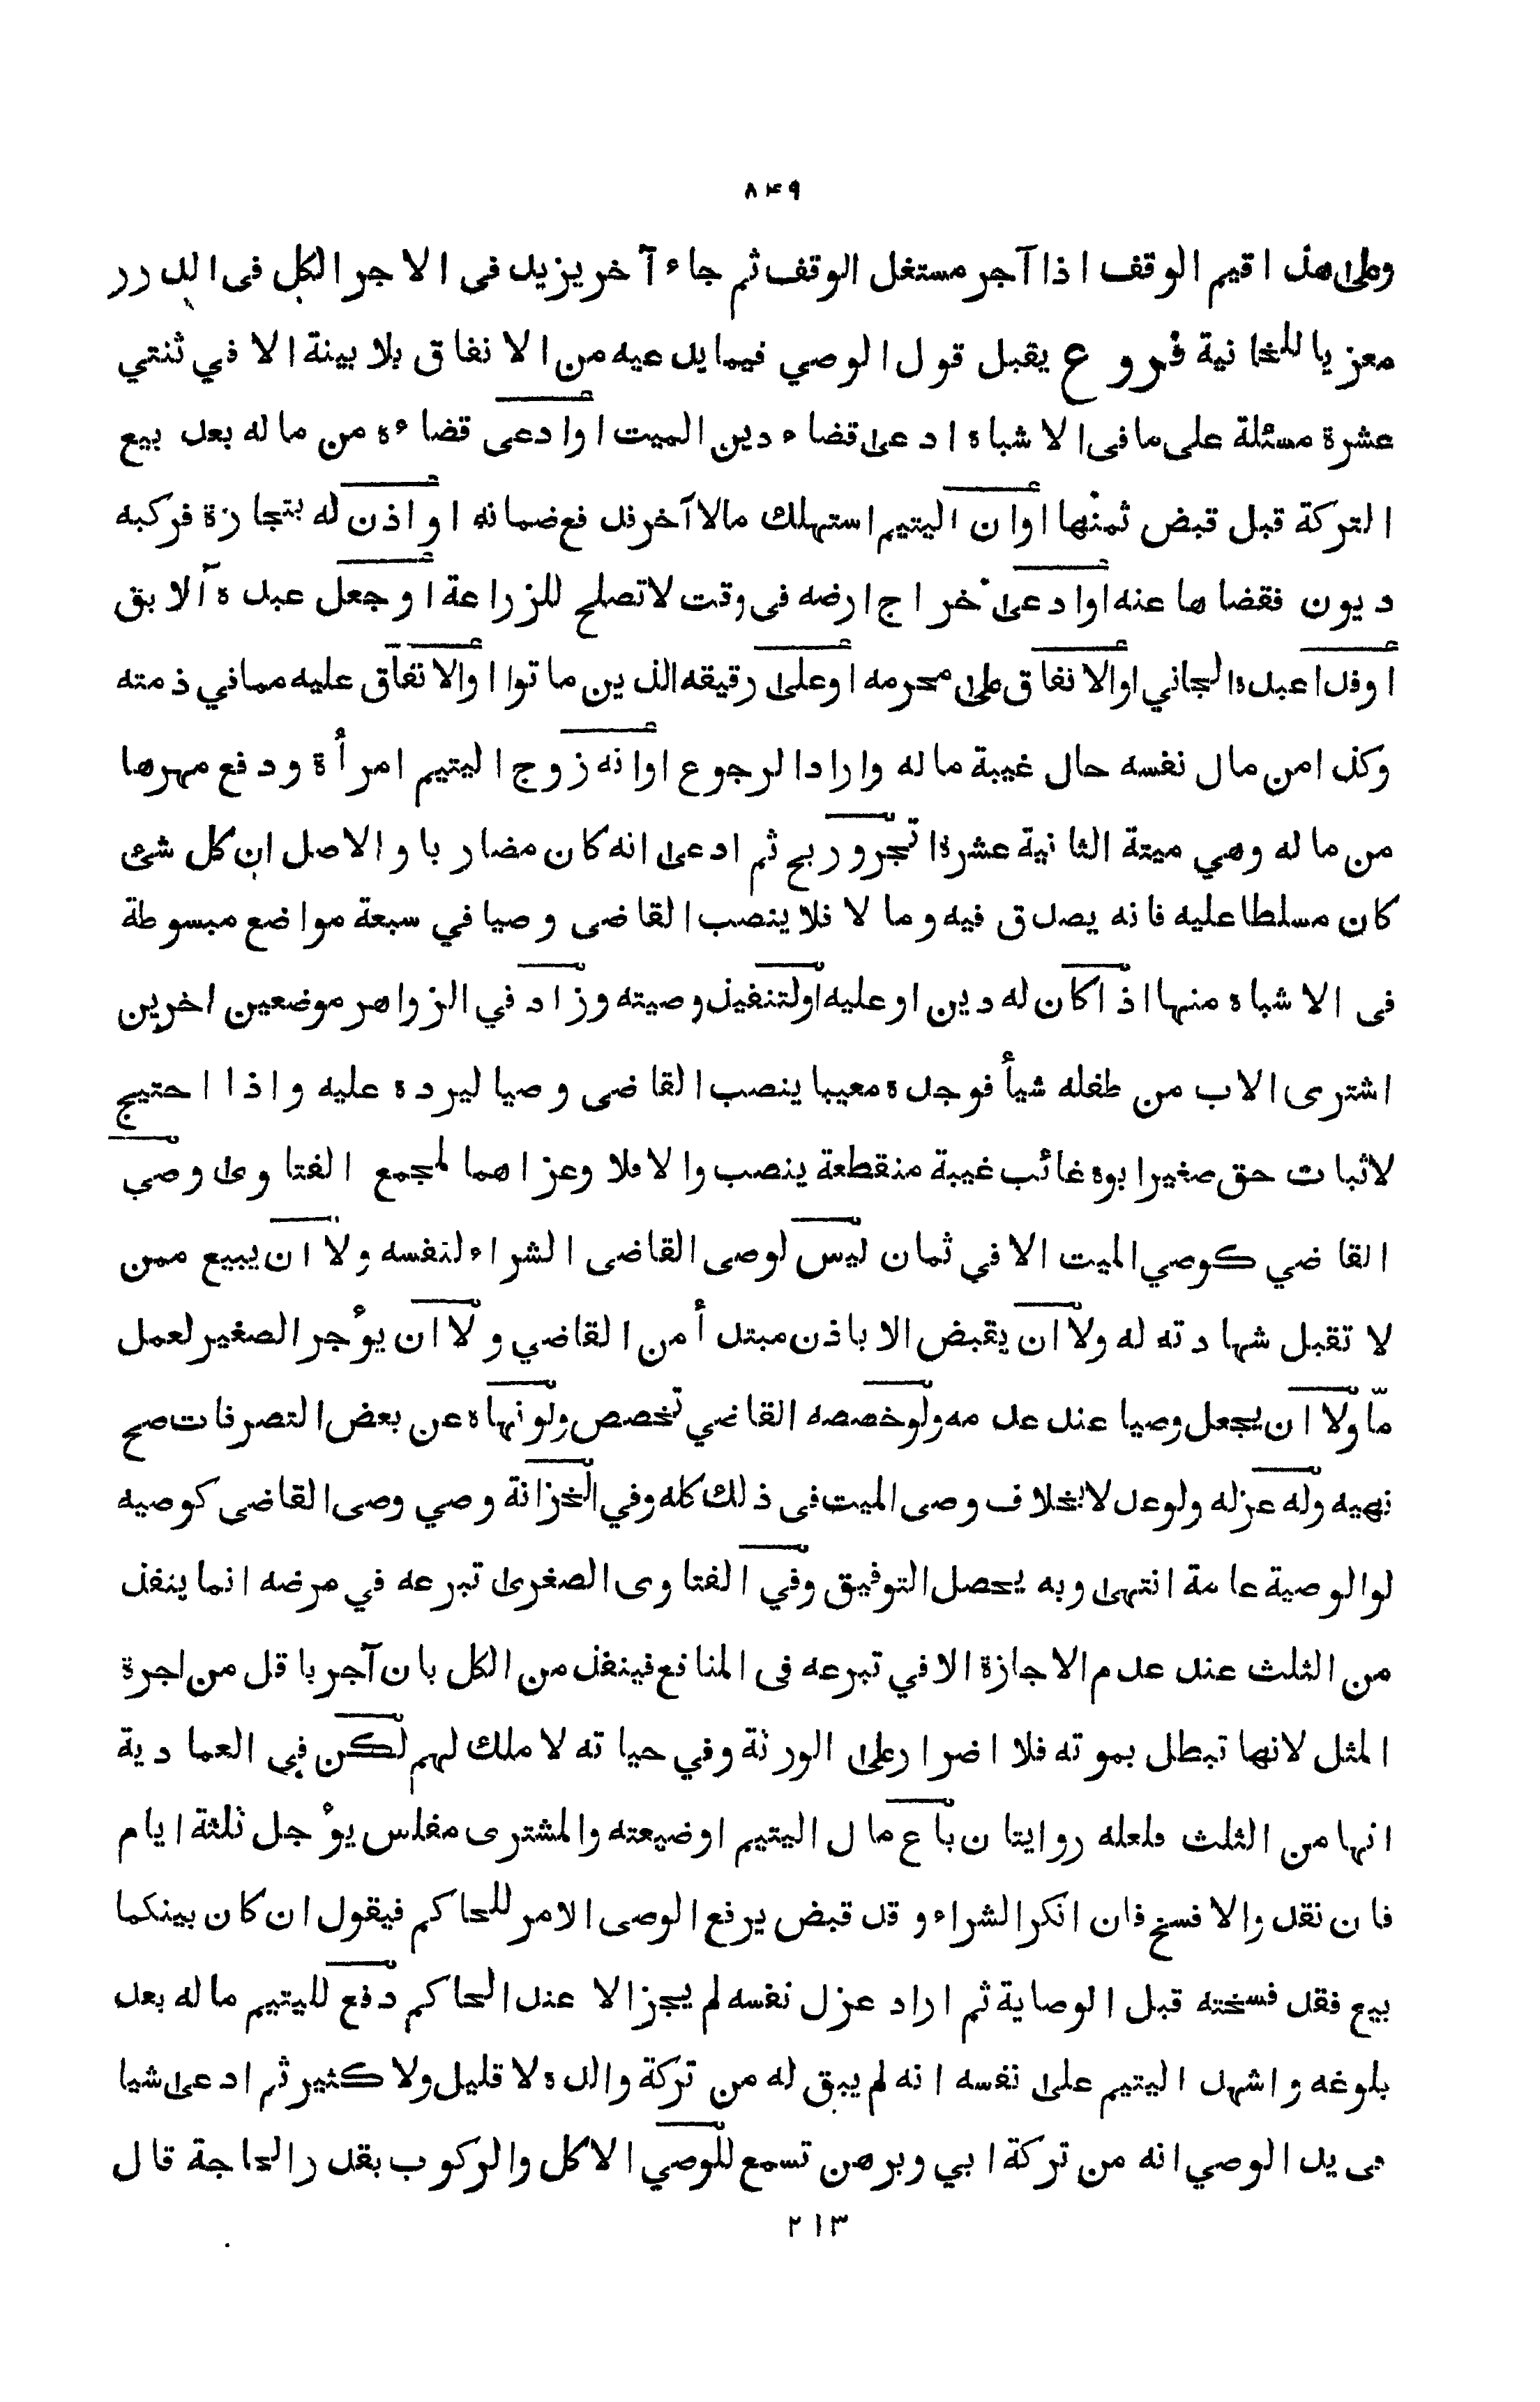 ٨٤٩
وعلى هذا قيم الوقف اذا آجر مستغل الوقف ثم جاء آخر يزيد فى الاجر الكل فى الدرر
معزيا للخانية فروع يقبل قول الوصي فيما يدعيه من الانفاق بلا بينة الا في ثنتي
عشرة مسئلة على ما فى الاشباه ادعى قضاء دين الميت او ادعى قضاءه من ماله بعد بيع
التركة قبل قبض ثمنها او ان اليتيم استهلك مالا آخر فدفع ضمانه او اذن له بتجارة فركبه
ديون فقضاها عنه او ادعى خراج ارضه فى وقت لا تصلح للزراعة او جعل عبده الآبق
او فداء عبده الجاني او الانفاق على محرمه او على رقيقه الذين ماتوا او الانفاق عليه مما في ذمته
وكذا من مال نفسه حال غيبة ماله واراد الرجوع او انه زوج اليتيم امرأة ودفع مهرها
من ماله وهي ميتة الثانية عشرة اتجر وربح ثم ادعى انه كان مضاربا والاصل ان كل شئ
كان مسلطا عليه فانه يصدق فيه وما لا فلا ينصب القاضى وصيا في سبعة مواضع مبسوطة
فى الاشباه منها اذا كان له دين او عليه او لتنفيذ وصيته وزاد في الزواهر موضعين اخرين
اشترى الاب من طفله شيأ فوجده معيبا ينصب القاضى وصيا ليرده عليه واذا احتيج
لاثبات حق صغير ابوه غائب غيبة منقطعة ينصب والا فلا وعزاهما لمجمع الفتاوى وصي
القاضي كوصي الميت الا في ثمان ليس لوصى القاضى الشراء لنفسه ولا ان يبيع ممن
لا تقبل شهادته له ولا ان يقبض الا باذن مبتدأ من القاضي ولا ان يؤجر الصغير لعمل
مّا ولا ان يجعل وصيا عند عدمه ولو خصصه القاضي تخصص ولو نهاه عن بعض التصرفات صح
نهيه وله عزله ولو عدلا بخلاف وصى الميت فى ذلك كله وفي الخزانة وصي وصى القاضى كوصيه
لو الوصية عامة انتهى وبه يحصل التوفيق وفي الفتاوى الصغرى تبرعه في مرضه انما ينفذ
من الثلث عند عدم الاجازة الا في تبرعه فى المنافع فينفذ من الكل بان آجر باقل من اجرة
المثل لانها تبطل بموته فلا اضرار على الورثة وفي حياته لا ملك لهم لكن في العمادية
انها من الثلث فلعله روايتان باع مال اليتيم او ضيعته والمشترى مفلس يؤجل ثلثة ايام
فان نقد والا فسخ فان انكر الشراء وقد قبض يرفع الوصى الامر للحاكم فيقول ان كان بينكما
بيع فقد فسخته قبل الوصاية ثم اراد عزل نفسه لم يجز الا عند الحاكم دفع لليتيم ماله بعد
بلوغه واشهد اليتيم على نفسه انه لم يبق له من تركة والده لا قليل ولا كثير ثم ادعى شيا
فى يد الوصي انه من تركة ابي وبرهن تسمع للوصي الاكل والركوب بقدر الحاجة قال
٢١٣